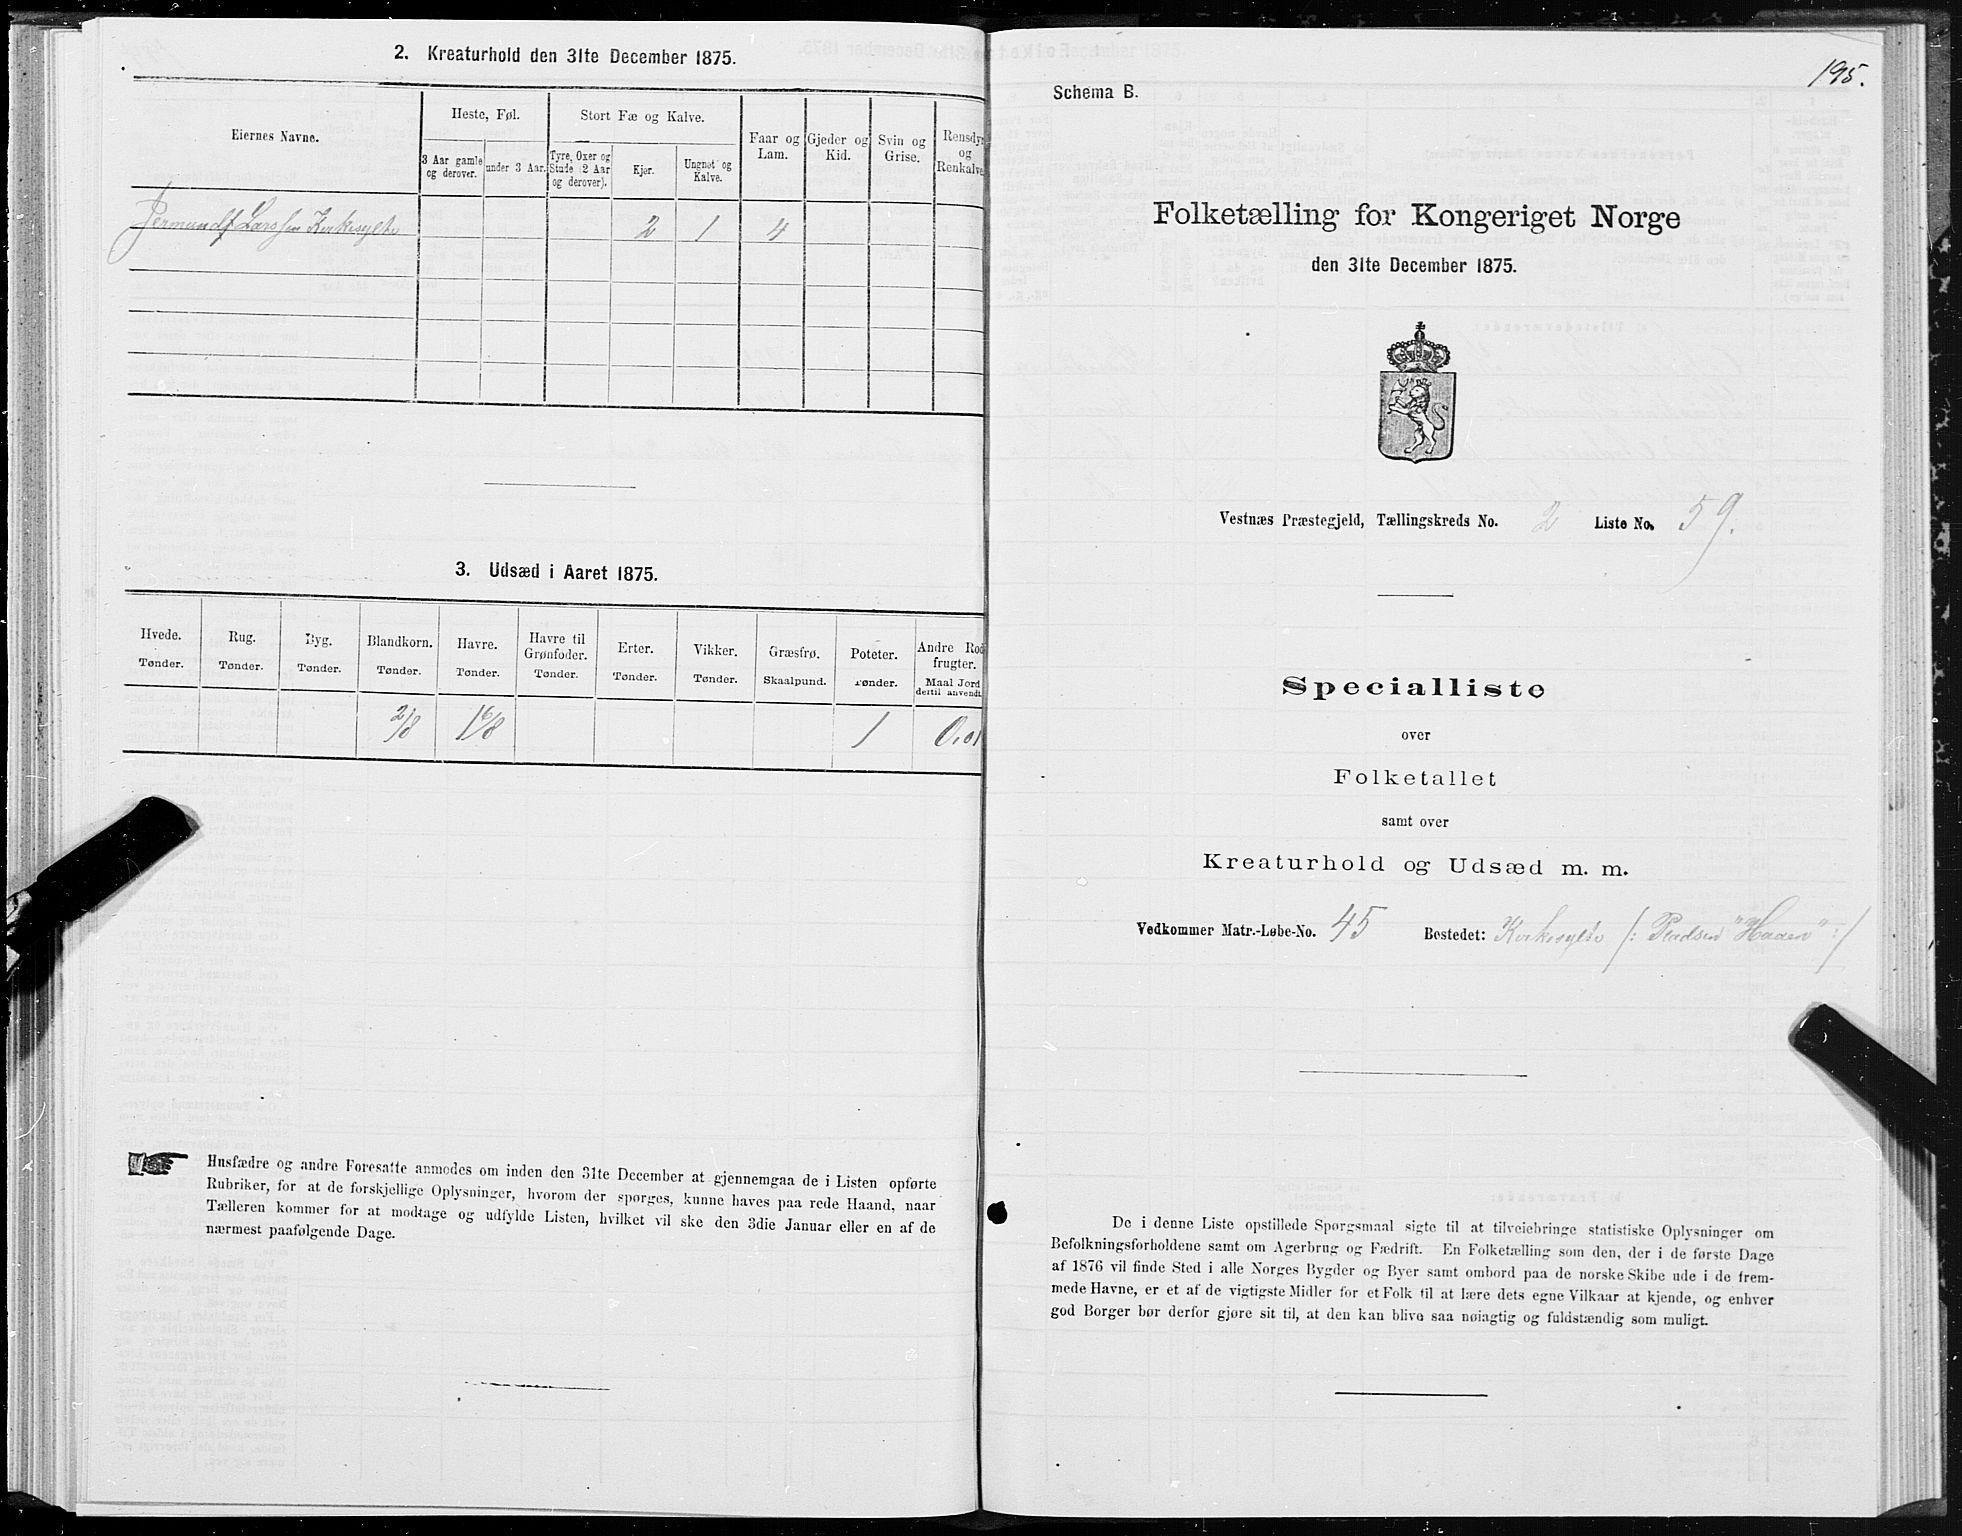 2. Kreaturhold den 31te December 1875.
Eiernes Navne.
Heste, Føl.
Stort Fæ og Kalve.
Faar og Lam.
Gjeder og Kid.
Svin og Grise.
Rensdyr og Renkalve.
3 Aar gamle og derover.
under 3 Aar.
Tyre, Oxer og Stude (2 Aar og derover).
Kjer.
Ungnøt og Kalve.
Jermund Larssen Kirkesylte 2 1 4
3. Udsæd i Aaret 1875.
Hvede. Rug. Byg. Blandkorn. Havre. Havre til Grønfoder. Erter. Vikker. Græsfrø. Poteter. Andre Rodfrugter.
Tønder. Tønder. Tønder. Tønder. Tønder. Tønder. Tønder. Tønder. Skaalpund. Tønder. Maal Jord dertil anvendt.
2/8 1 6/8 1 0.01
Husfædre og andre Foresatte anmodes om inden den 31te December at gjennemgaa de i Listen opførte
Rubriker, for at de forskjellige Oplysninger, hvorom der spørges, kunne haves paa rede Haand, naar
Tælleren kommer for at modtage og udfylde Listen, hvilket vil ske den 3die Januar eller en af de
nærmest paafølgende Dage.
195.
Schema B.
Folketælling for Kongeriget Norge
den 31te December 1875.
Vestnæs Præstegjeld, Tællingskreds No. 2 Liste No. 59.
Specialliste
over
Folketallet
samt over
Kreaturhold og Udsæd m. m.
Vedkommer Matr.-Løbe-No. 45 Bostedet: Kirkesylte /: Pladsen "Haaen" :/
De i denne Liste opstillede Spørgsmaal sigte til at tilveiebringe statistiske Oplysninger om
Befolkningsforholdene samt om Agerbrug og Fædrift. En Folketælling som den, der i de første Dage
af 1876 vil finde Sted i alle Norges Bygder og Byer samt ombord paa de norske Skibe ude i de frem-
mede Havne, er et af de vigtigste Midler for et Folk til at lære dets egne Vilkaar at kjende, og enhver
god Borger bør derfor gjøre sit til, at den kan blive saa nøiagtig og fuldstændig som muligt.